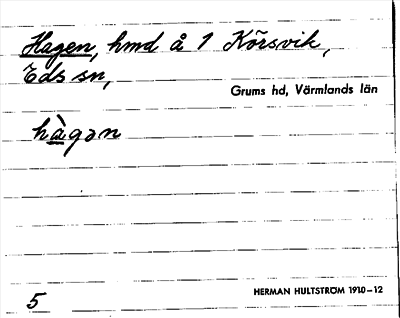 Hagen, hmd å 1 Kõrsvik,
Eds sn,
Grums hd, Värmlands län
hàgən
HERMAN HULTSTRÖM 1910–12
5